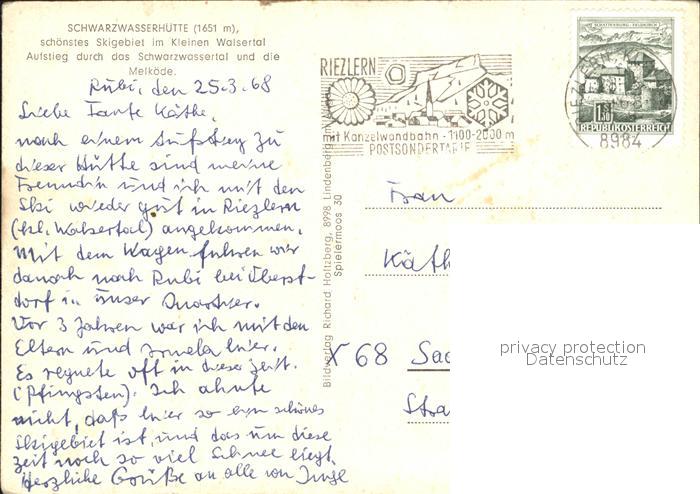 SCHWARZWASSERHÜTTE (1651 m),
schönstes Skigebiet im Kleinen Walsertal
Aufstieg durch das Schwarzwassertal und die
Melköde.
Rubi, den 25.3.68
Liebe Tante Käthe,
nach einem Aufstieg zu
dieser Hütte sind meine
Freundin und ich mit den
Ski wieder gut in Riezlern
(kl. Walsertal) angekommen.
Mit dem Wagen fuhren wir
danach nach Rubi bei Oberst-
dorf in unser Quartier.
Vor 3 Jahren war ich mit den
Eltern und hier.
Es regnete oft in dieser Zeit.
(Pfingsten). Ich ahnte
nicht, daß hier so ein schönes
Skigebiet ist, und das um diese
Zeit noch so viel Schnee liegt.
Herzliche Grüße an alle von Inge
Bildverlag Richard Holtzberg, 8998 Lindenberg im
Spielermoos 30
RIEZLERN
mit Kanzelwandbahn - 1100-2000 m
POSTSONDERTARIF
SCHATTENBURG - FELDKIRCH
1.30
REPUBLIK ÖSTERREICH
8984
Frau
Käth
X 68 Saa
Stra
privacy protection
Datenschutz